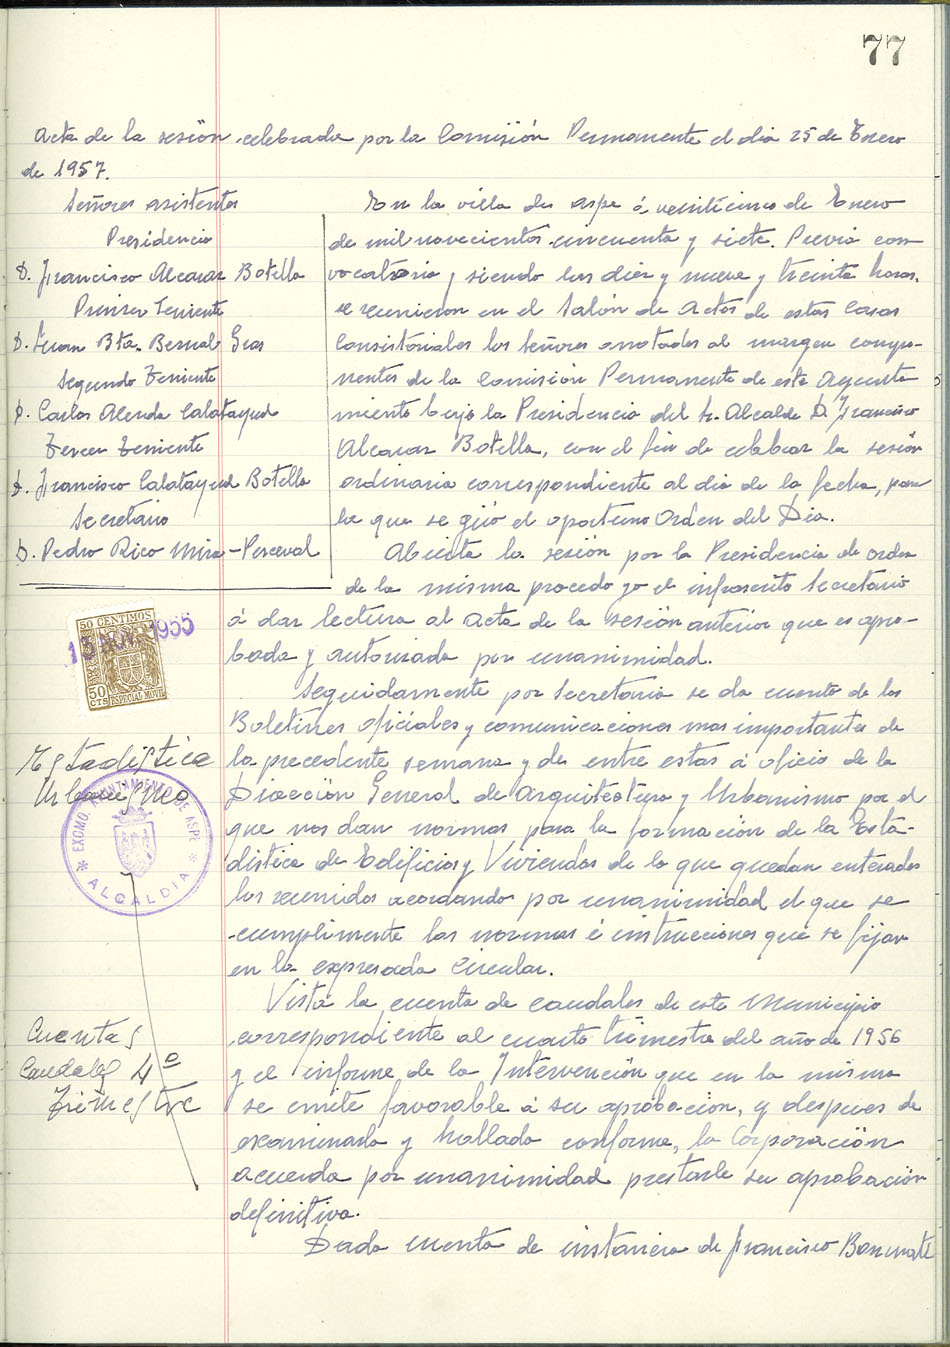 77
Acta de la sesión celebrada por la Comisión Permanente el dia 25 de Enero
de 1957.
Señores asistentes
Presidencia
D. Francisco Alcaraz Botella
Primer Teniente
D. Juan Bta. Bernal Gras
Segundo Teniente
D. Carlos Alenda Calatayud
Tercer Teniente
D. Francisco Calatayud Botella
Secretario
D. Pedro Rico Mira-Perceval
En la villa de Aspe á veinticinco de Enero
de mil novecientos cincuenta y siete. Previa con
vocatoria y siendo las diez y nueve y treinta horas,
se reunieron en el Salón de Actos de estas Casas
Consistoriales los Señores anotados al margen compo-
nentes de la Comisión Permanente de este Ayunta
miento bajo la Presidencia del Sr. Alcalde D. Francisco
Alcaraz Botella, con el fin de celebrar la sesión
ordinaria correspondiente al dia de la fecha, para
la que se giró el oportuno Orden del Dia.
Abierta la sesión por la Presidencia de orden
de la misma procedo yo el infrascrito Secretario
á dar lectura al acta de la sesión anterior que es apro-
bada y autorizada por unanimidad.
50 CENTIMOS
13 NOV. 1955
50
CTS
ESPECIAL MOVIL
Seguidamente por Secretaria se da cuenta de los
Boletines oficiales y comunicaciones mas importantes de
la precedente semana y de entre estas á oficio de la
Dirección General de Arquitectura y Urbanismo por el
que nos dan normas para la formación de la Esta-
distica de Edificios y Viviendas de lo que quedan enterados
los reunidos acordando por unanimidad el que se
cumplimente las normas é instrucciones que se fijan
en la expresada Circular.
Estadistica
Urbanismo
EXCMO. AYUNTAMIENTO DE ASPE
* ALCALDIA *
Vista la cuenta de caudales de este Municipio
correspondiente al cuarto trimestre del año de 1956
y el informe de la Intervención que en la misma
se emite favorable á su aprobacion, y despues de
examinada y hallada conforme, la Corporación
acuerda por unanimidad prestarle su aprobación
definitiva.
Cuentas
Caudales 4º
Trimestre
Dada cuenta de instancia de Francisco Bonmati